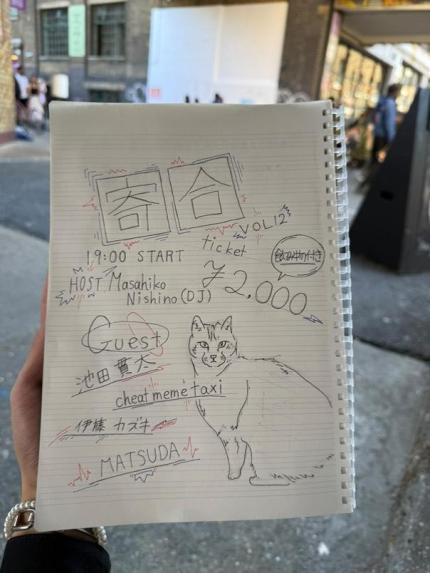 寄合
VOL12
19:00 START
ticket
¥2.000
HOST Masahiko
Nishino (DJ)
Guest
池田 貫太
cheatmemetaxi
伊藤 カズキ
MATSUDA